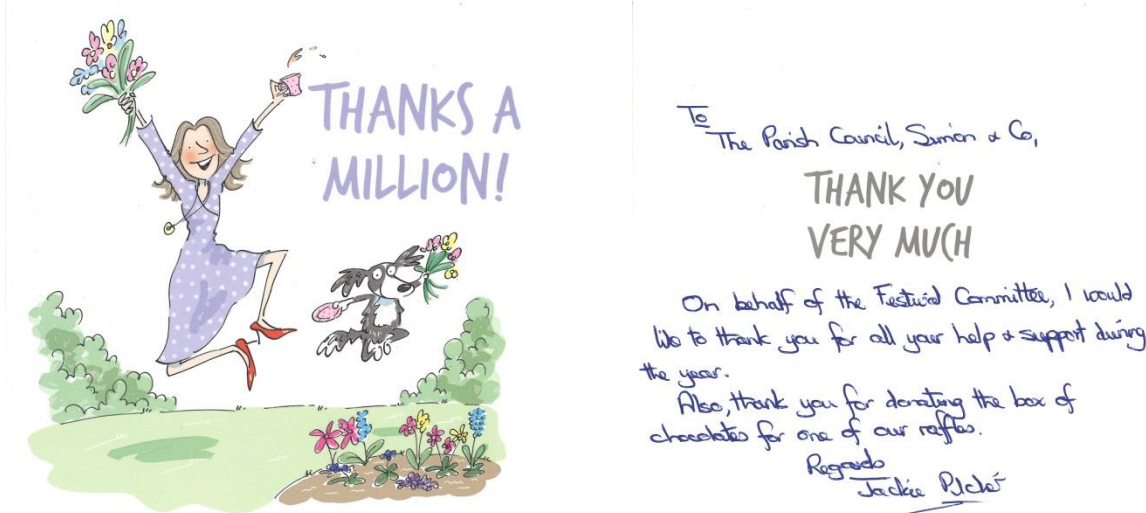 THANKS A
MILLION!
To
The Parish Council, Simon & Co,
THANK YOU
VERY MUCH
On behalf of the Festival Committee, I would
like to thank you for all your help & support during
the year.
Also, thank you for donating the box of
chocolates for one of our raffles.
Regards
Jackie